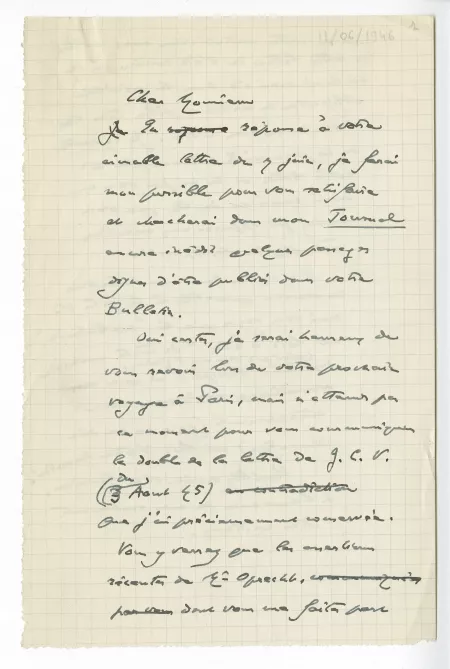 11/06/1946
Cher Monsieur
Je En reponse réponse à votre
aimable lettre du 7 juin, je ferai
mon possible pour vous satisfaire
et chercherai dans mon Journal
encore inédit quelques passages
dignes d'être publiés dans votre
Bulletin.
Oui certes, je serai heureux de
vous revoir lors de votre prochain
voyage à Paris, mais n'attends pas
ce moment pour vous communiquer
le double de la lettre de J. C. V.
(du 3 Aout 45) en contradiction
que j'ai précieusement conservée.
Vous y verrez que les assertions
récentes de Mr Oprecht, communiquées
par vous dont vous me faites part